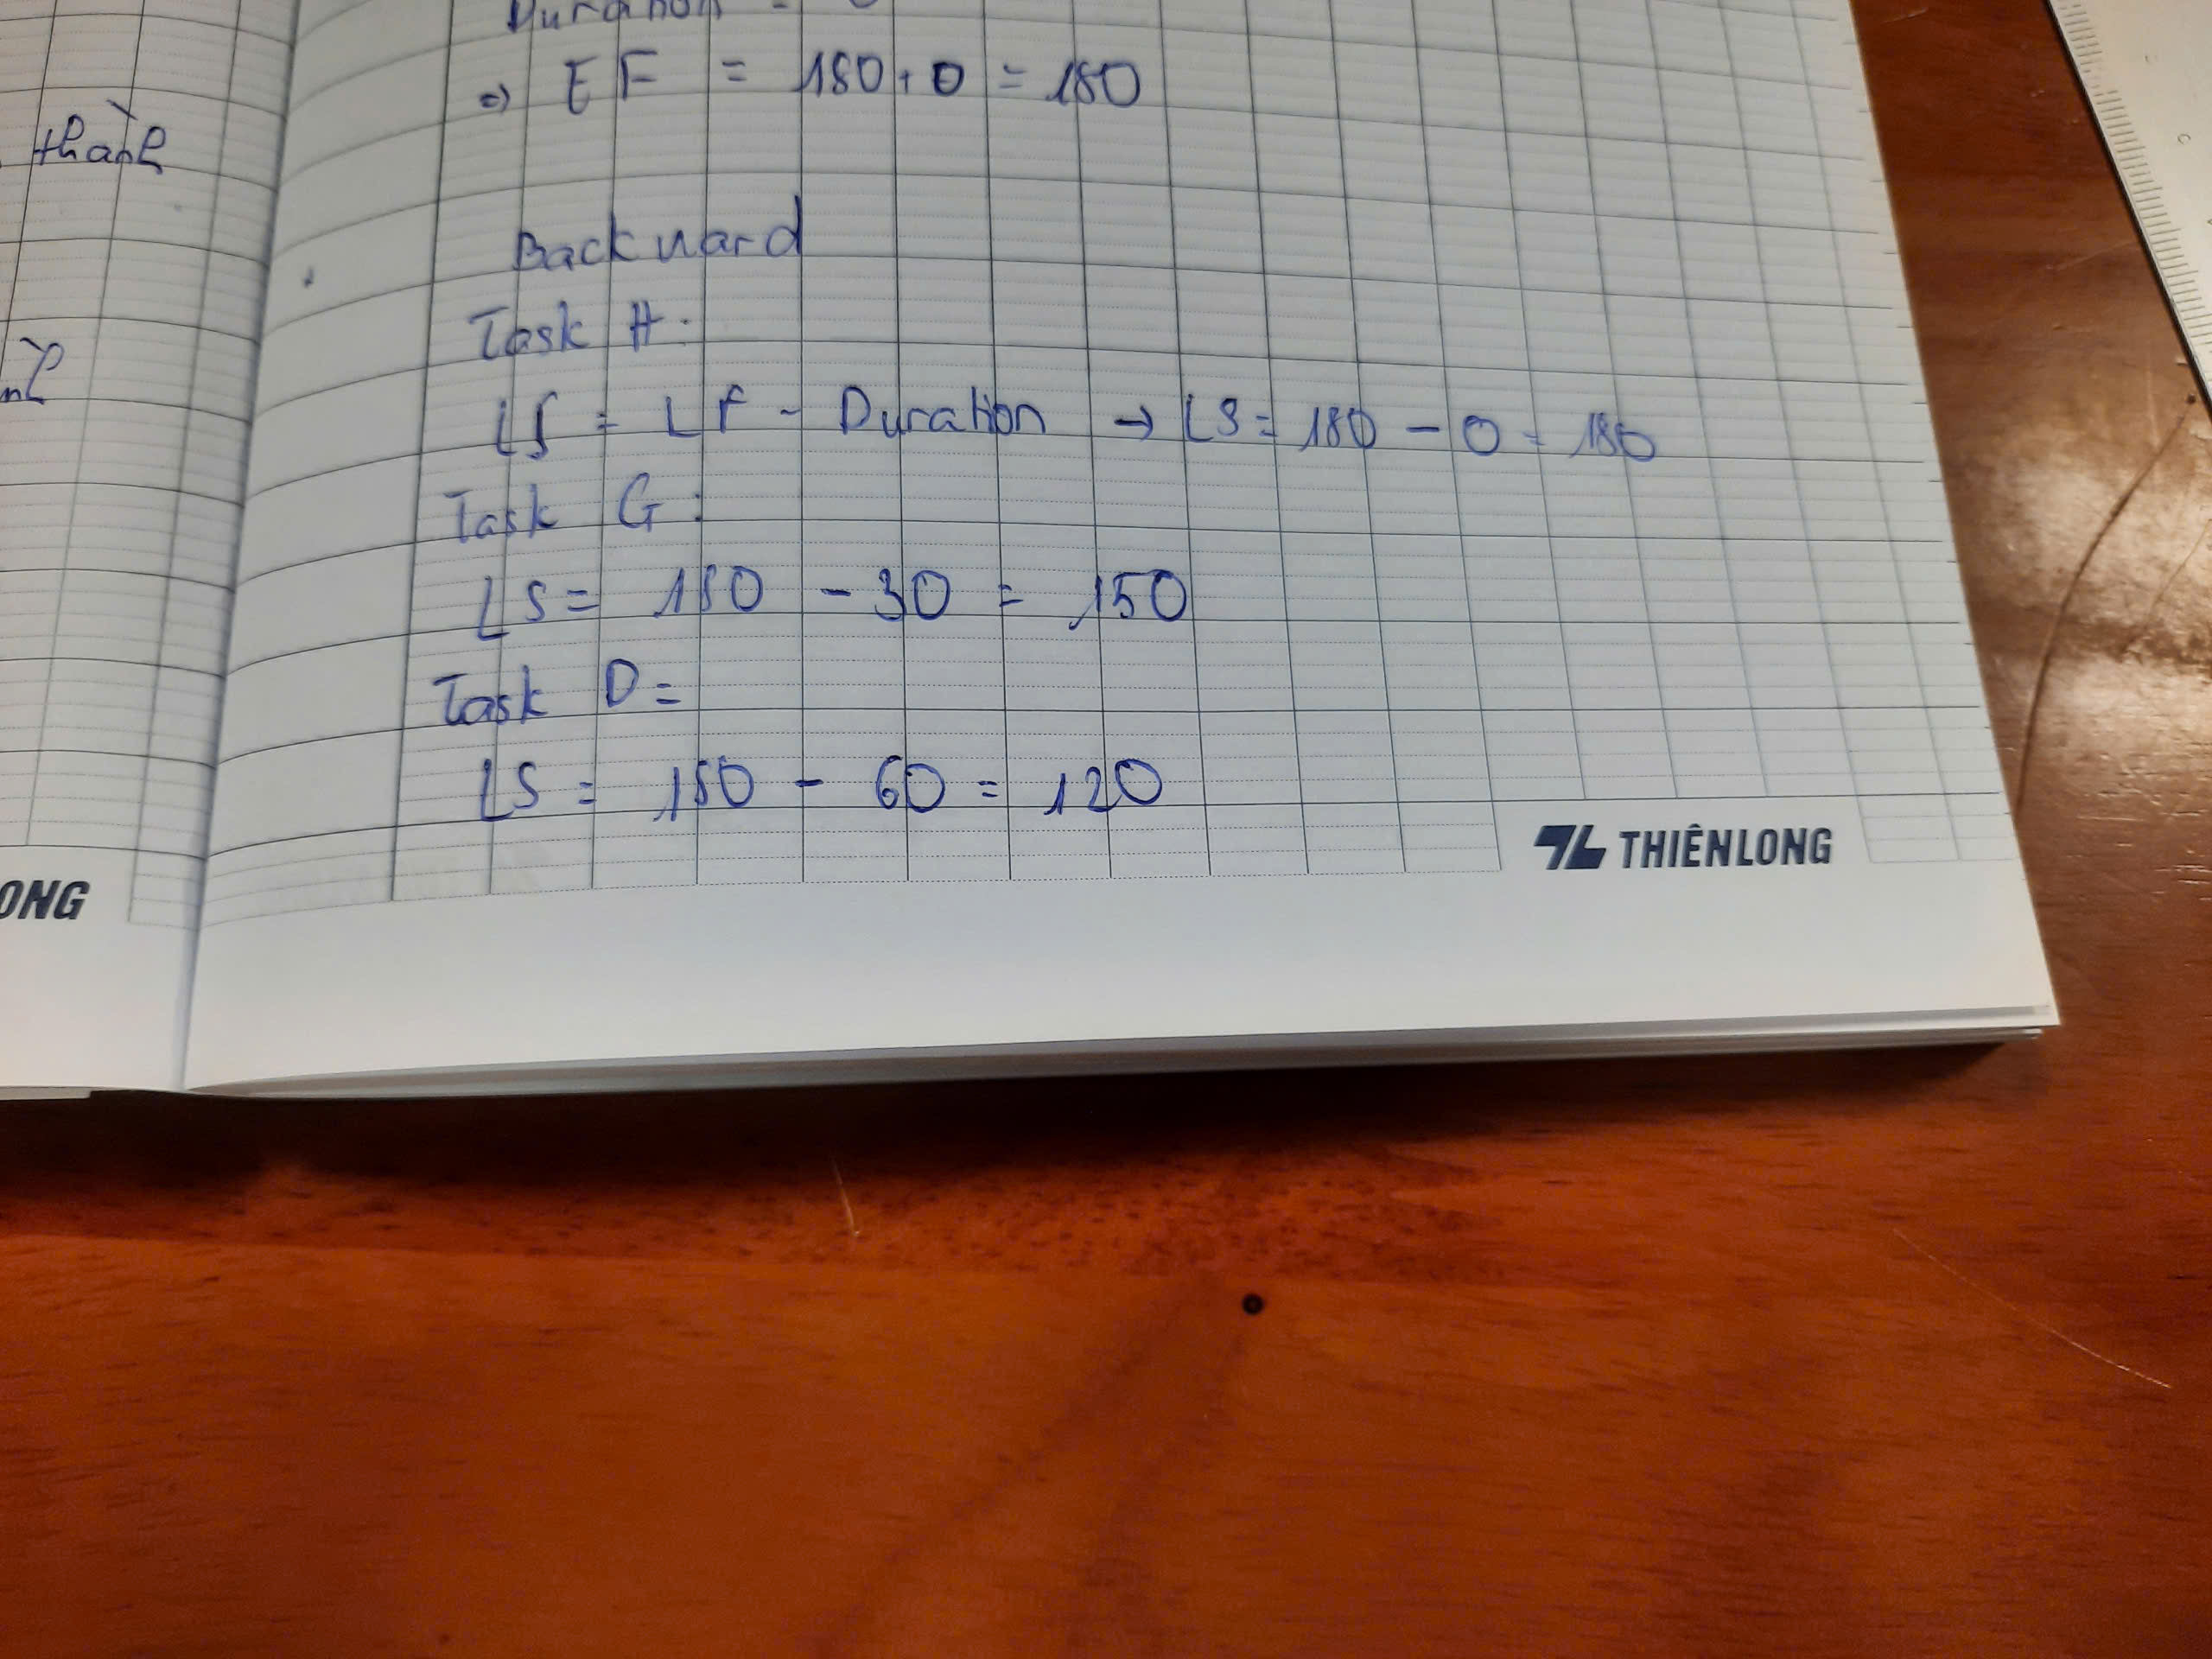 thành
Duration = 0
=> EF = 180 + 0 = 180
Backward
Task H:
LS = LF - Duration → LS = 180 - 0 = 180
Task G:
LS = 180 - 30 = 150
Task D =
LS = 180 - 60 = 120
THIÊN LONG
ONG